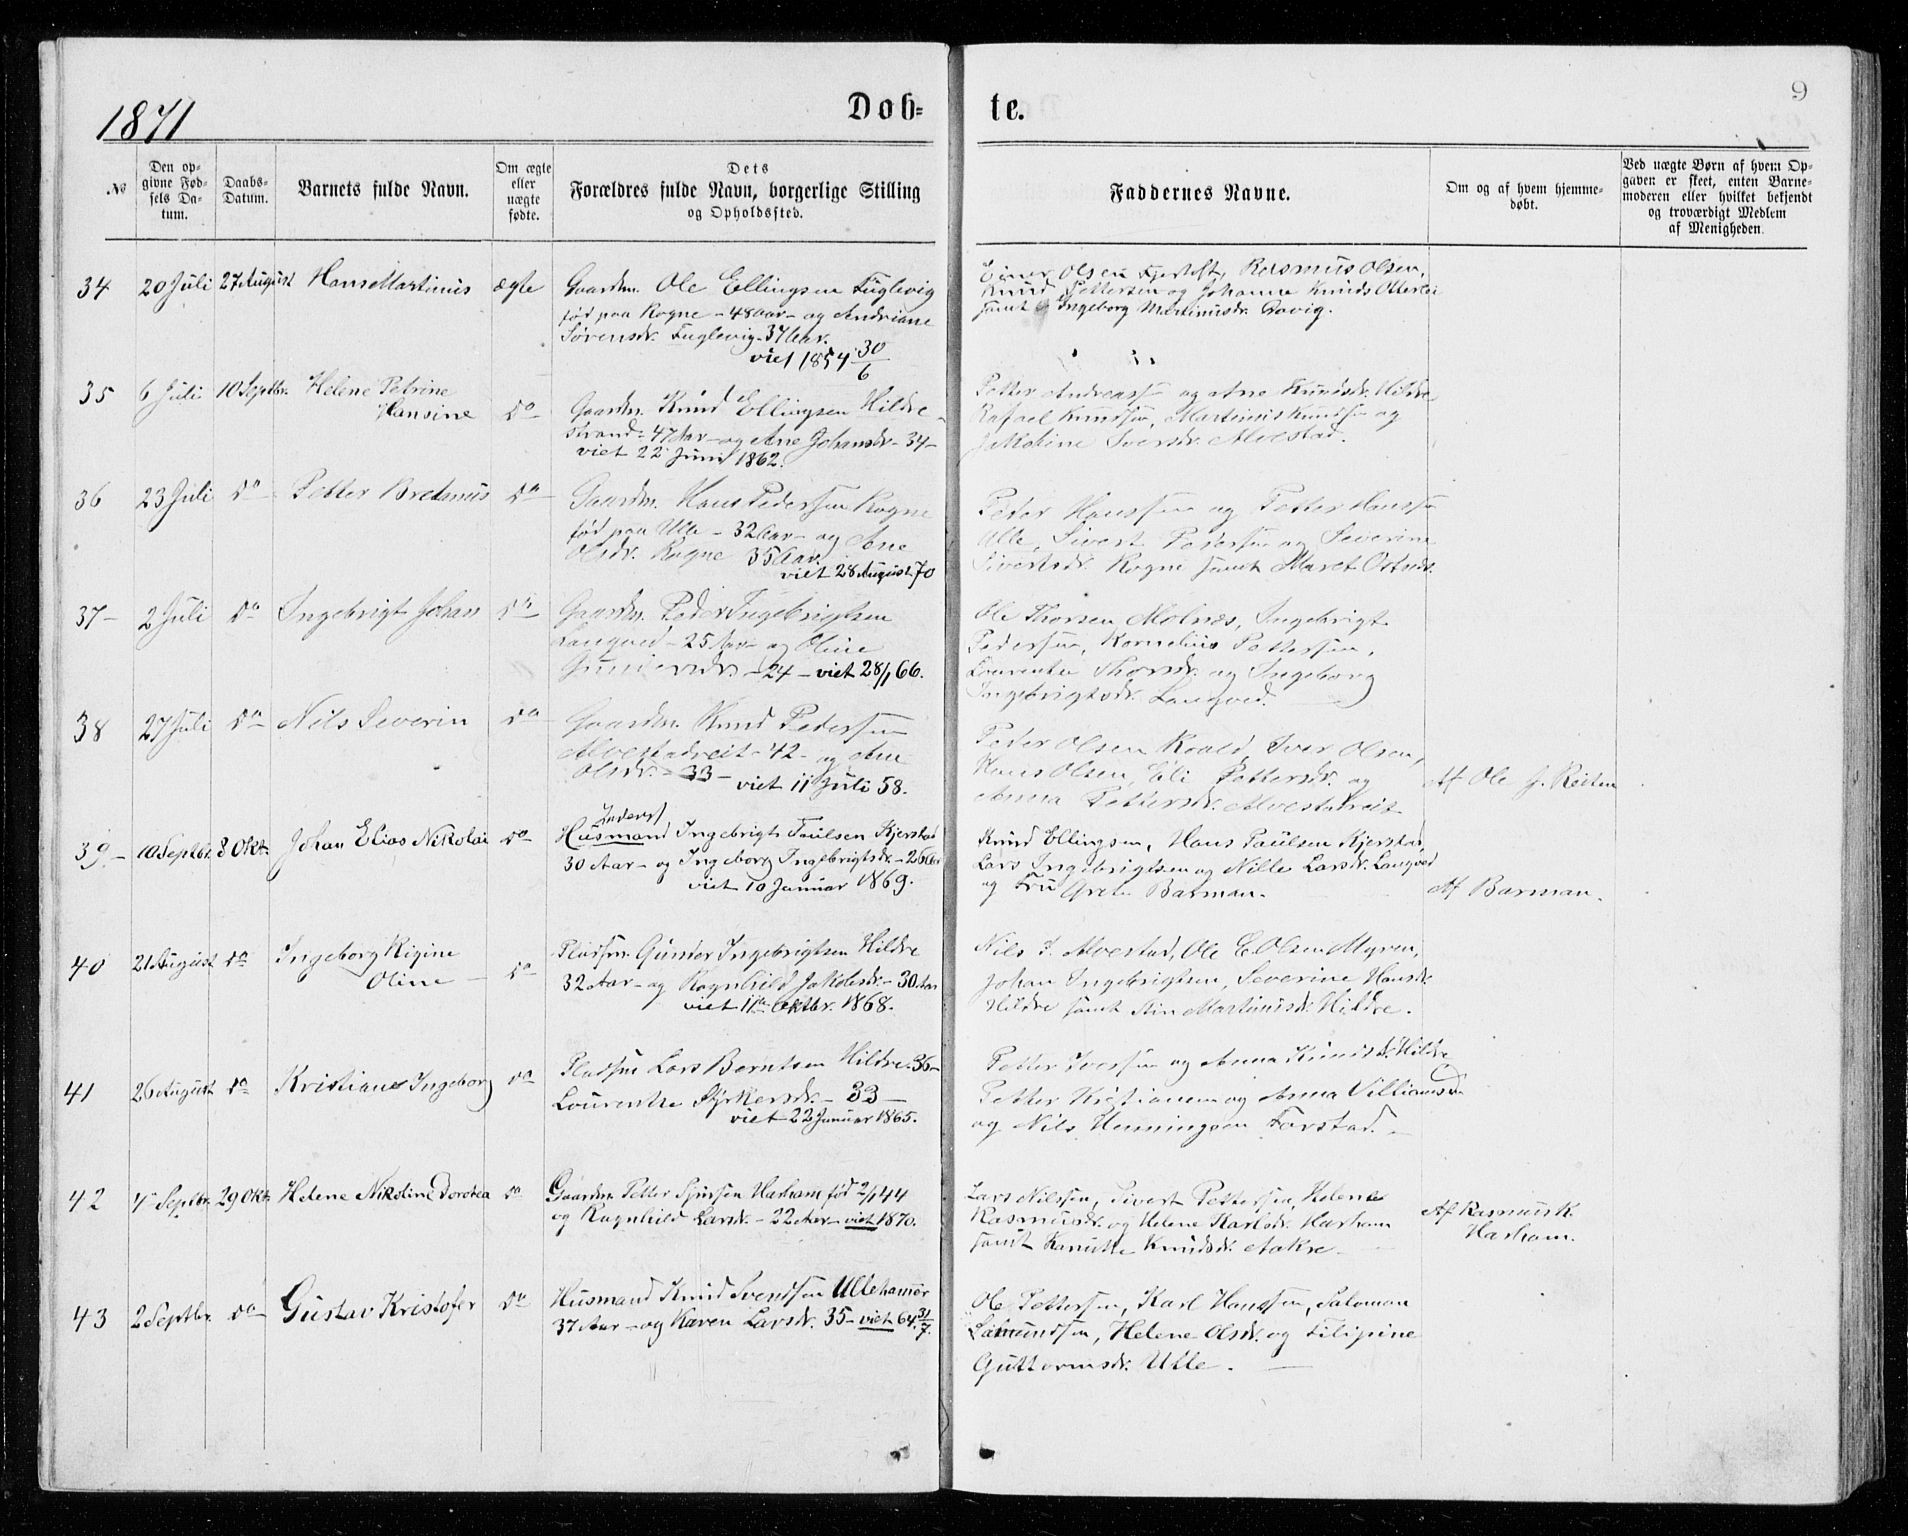 1871
Døb-
te.
9
№
Den op-
givne Fød-
sels Da-
tum.
Daabs-
Datum.
Barnets fulde Navn.
Om ægte
eller
uægte
fødte.
Dets
Forældres fulde Navn, borgerlige Stilling
og Opholdssted.
Faddernes Navne.
Om og af hvem hjemme-
døbt.
Ved uægte Børn af hvem Op-
gaven er skeet, enten Barne-
moderen eller hvilket bekjendt
og troværdigt Medlem
af Menigheden.
34 20 Juli 27 August Hans Martinus ægte
Gaardm. Ole Ellingsen Fuglevig
født paa Rogne - 48 Aar - og Andriane
Sørensdr. Fuglevig - 37 Aar.
viet 1854 30/6
Einer Olsen Fjertoft, Rasmus Olsen,
Knud Pettersen og Johanne Knuds Otterlei
samt Ingeborg Martinusdr.
35 6 Juli 10 Septbr. Helene Petrine
Hansine do
Gaardm. Knud Ellingsen Hildre-
strand - 47 Aar - og Ane Johansdr. - 34 -
viet 22 Juni 1862.
Petter Andreass og Ane Knudsdr. Hildre
Rafael Knudsen, Martinus Knudsen og
Jakobine Iversdr. Alvestad.
36 23 Juli do Petter Bretanus do
Gaardm. Hans Pedersen Rogne
født paa Ulle - 32 Aar - og Ane
Olsdr. Rogne 35 Aar.
viet 28 August 70
Peder Hanssen og Petter Hanssen
Ulle, Sivert Pedersen og Severine
Sivertsdr. Rogne samt Maret
37 - 2 Juli do Ingebrigt Johan do
Gaardm. Peder Ingebrigtsen
Langved - 25 Aar - og Oline
- 24 - viet 28/1 66.
Ole Thorsen Molnes, Ingebrigt
Pedersen, Kornelius Pettersen,
Laurentse Thorsdr. og Ingeborg
Ingebrigtsdr. Langved.
38 27 Juli do Nils Severin do
Gaardm. Knud Pedersen
Alvestadreit - 42 - og Ane
Olsdr. - 33 -
viet 11 Juli 58.
Peder Olsen Roald, Iver Olsen,
Hans Olsen, Eli Pettersdr. og
Anna Pettersdr. Alvestadreit
Af Ole J. Reiten
39 - 10 Septbr. 8 Okt. Johan Elias Nikolai do
Inderst
Husmand Ingebrigt Paulsen Kjerstad
30 Aar - og Ingeborg Ingebrigtsdr. - 26 Aar
viet 10 Januar 1869.
Knud Ellingsen, Hans Paulsen Kjerstad,
Lars Ingebrigtsen og Nille Larsdr. Langved
og Fru Grete Barman.
Af Barman.
40 21 August do Ingeborg Rigine
Oline - do
Pladsm. Gunder Ingebrigtsen Hildre
32 Aar - og Ragnhild Jakobsdr. - 30 Aar
viet 11te Oktbr. 1868.
Nils P. Alvestad, Ole E. Olsen Myren,
Johan Ingebrigtsen, Severine Hansdr.
Hildre samt Martinusdr. Hildre.
41 26 August do Kristiane Ingeborg do
Pladsm Lars Berntsen Hildre 36 -
Lourentse Styrkersdr. - 33 -
viet 22 Januar 1865.
Petter Iversen og Anna Knudsdr. Hildre
Petter Kristiansen og Anna Villiamsdr.
og Nils Henningsen Farstad. -
42 4de Septbr. 29 Okt. Helene Nikoline Dorotea do
Gaardm. Petter Sjursen Harham født 2/1 44
og Ragnhild Larsdr. - 22 Aar - viet 1870.
Lars Nilssen, Sivert Pettersen, Helene
Rasmusdr. og Helene Karlsdr. Harham
samt Knudsdr. Aakre -
Af Rasmus K.
Harham.
43 2 Septbr. do Gustav Kristofer do
Husmand Knud Svendsen Ullehamer
37 Aar - og Karen Larsdr. 35 - viet 64 31/7.
Ole Pettersen, Karl Hanssen, Salomon
Lamundsen, Helene Olsdr. og Filipine
Guttormsdr. Ulle.